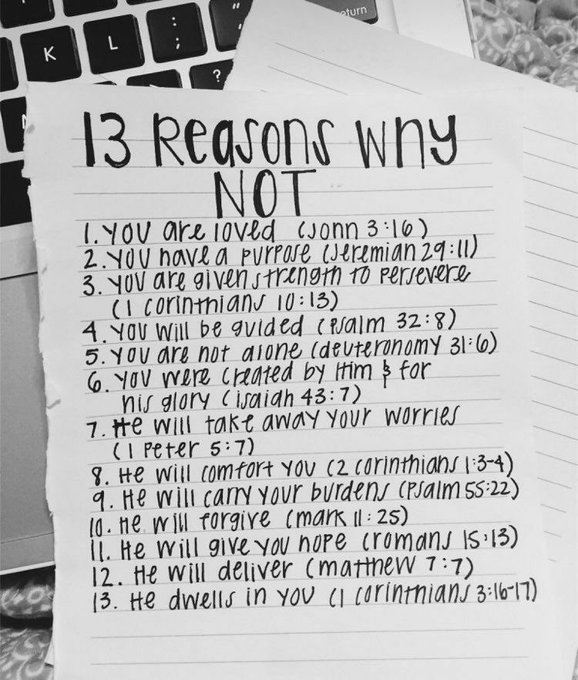 K L : ; " ' return
? /
13 Reasons Why
NOT
1. You are loved (John 3:16)
2. You have a purpose (Jeremiah 29:11)
3. You are given strength to persevere
(1 Corinthians 10:13)
4. You will be guided (Psalm 32:8)
5. You are not alone (deuteronomy 31:6)
6. You were created by Him & for
his glory (isaiah 43:7)
7. He will take away your worries
(1 Peter 5:7)
8. He will comfort you (2 corinthians 1:3-4)
9. He will carry your burdens (Psalm 55:22)
10. He will forgive (mark 11:25)
11. He will give you hope (romans 15:13)
12. He will deliver (matthew 7:7)
13. He dwells in you (1 corinthians 3:16-17)